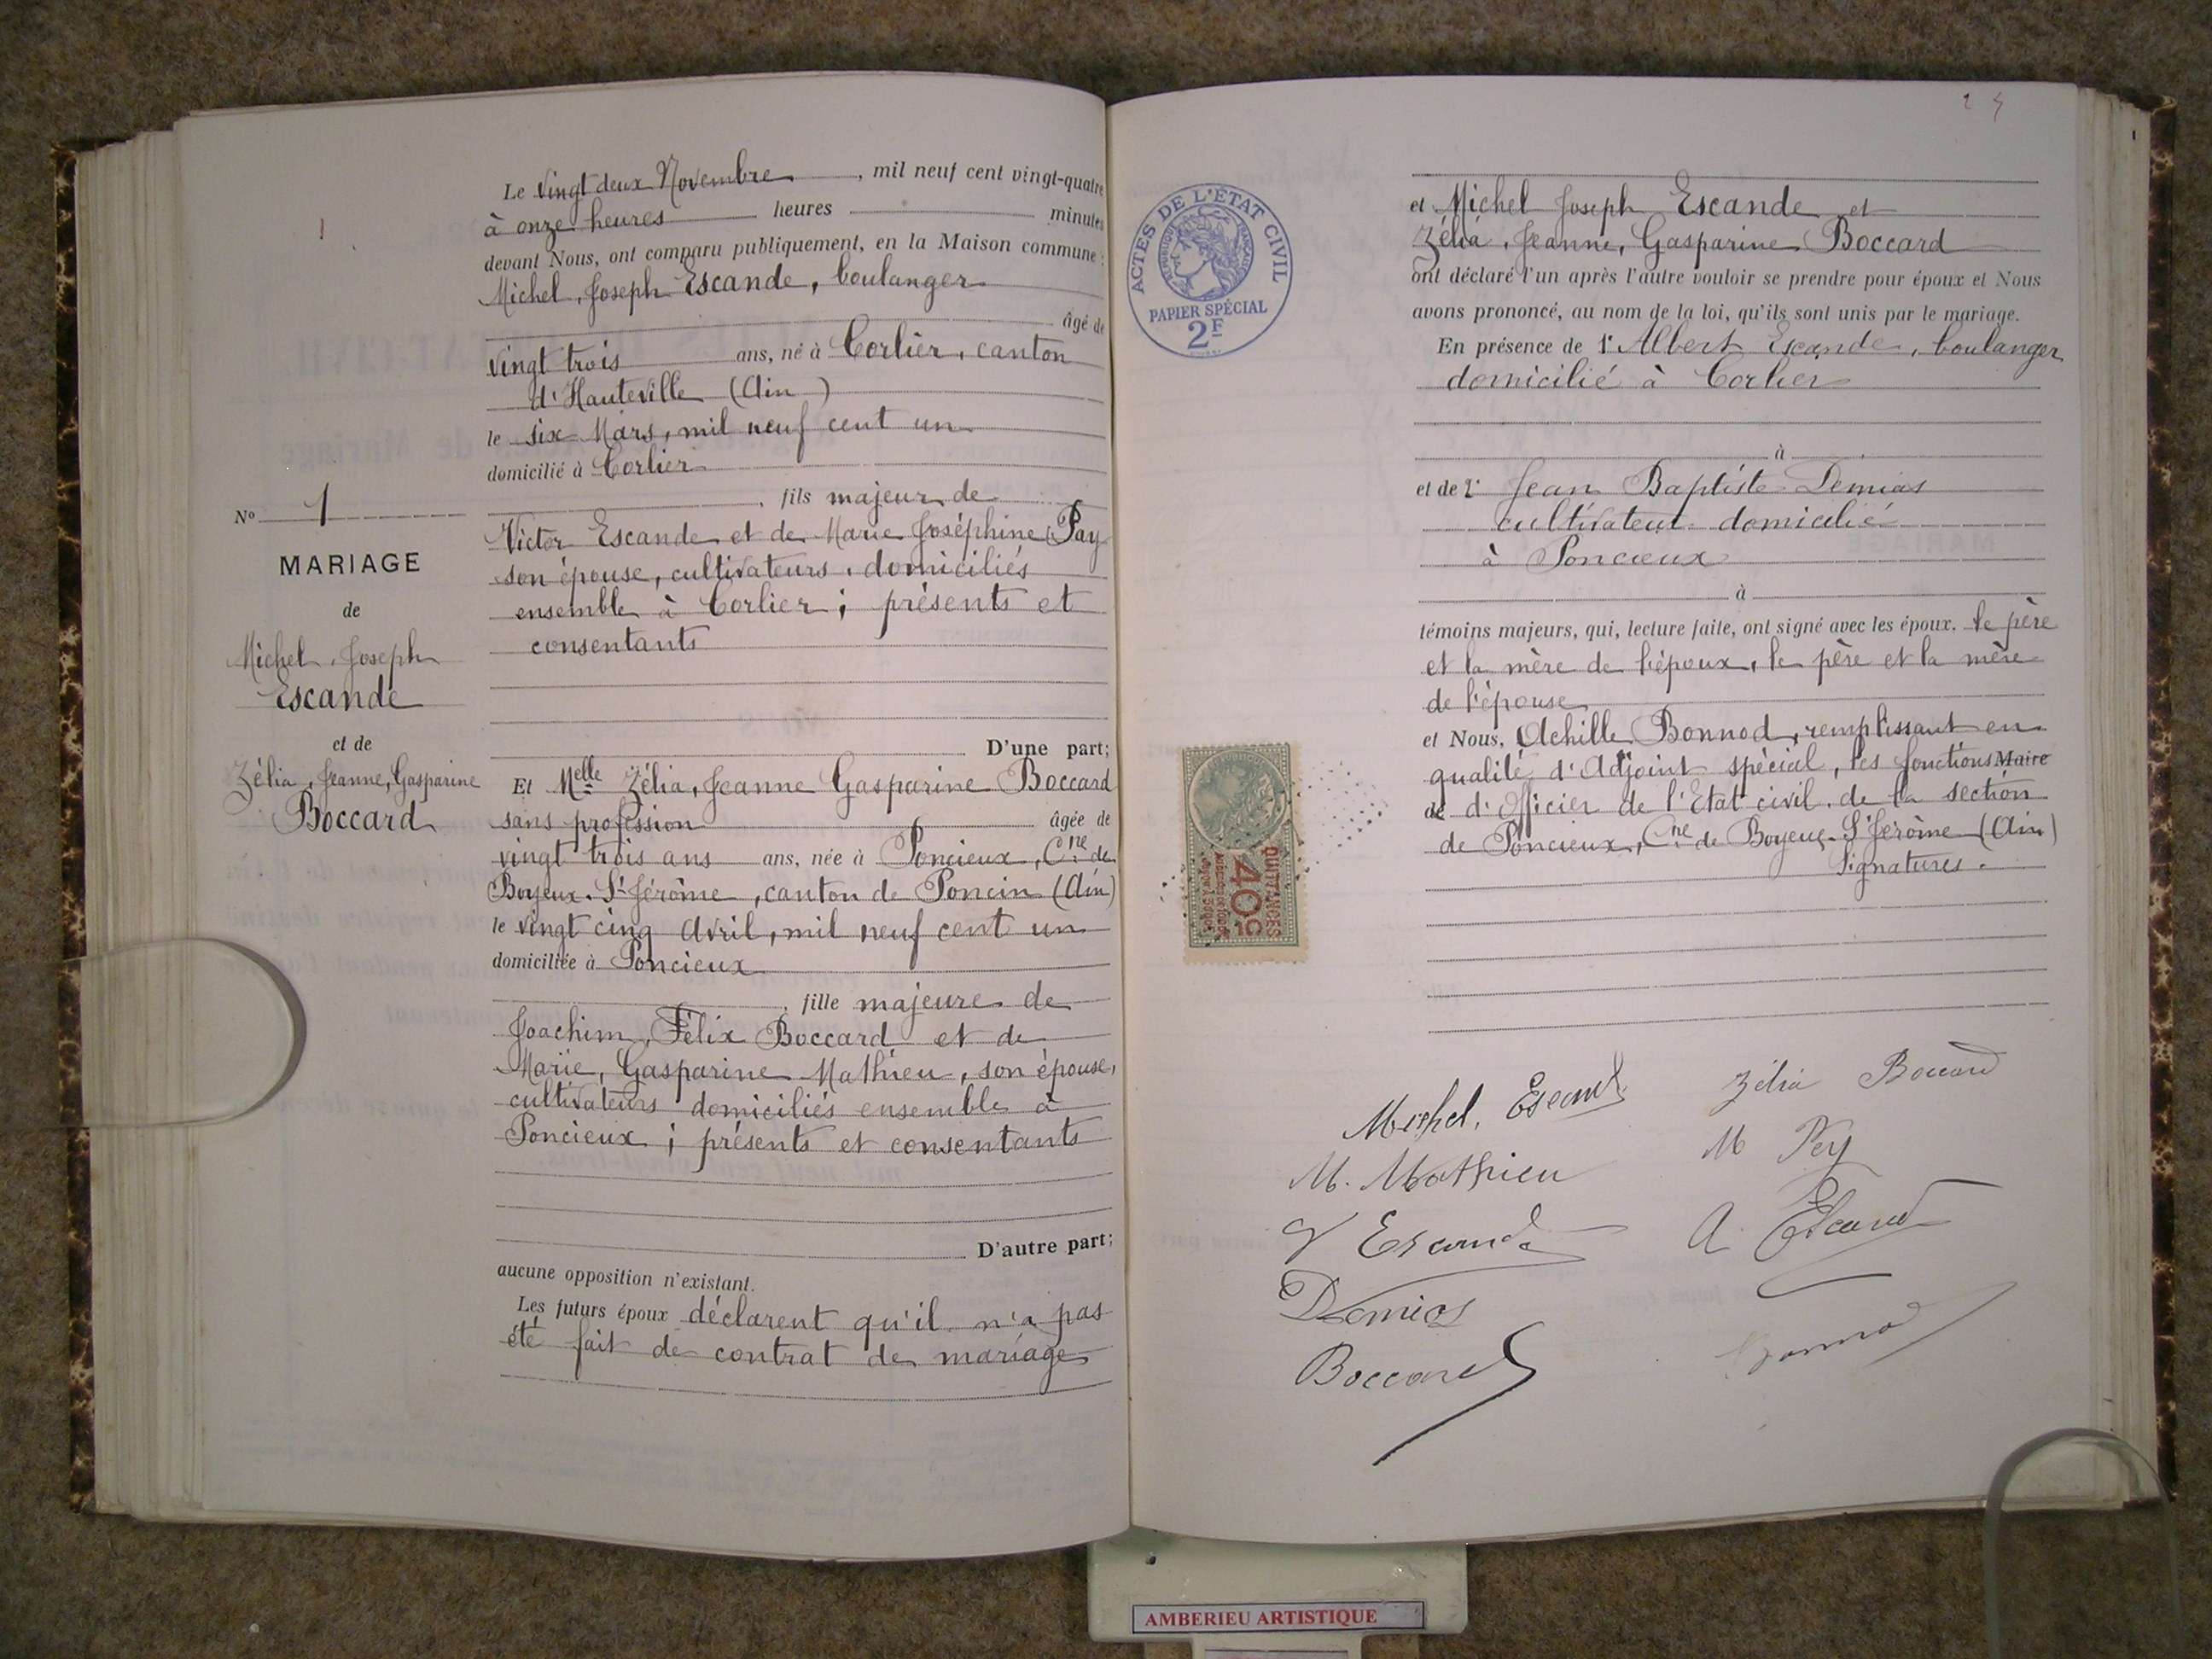 Le vingt deux Novembre, mil neuf cent vingt-quatre
à onze heures heures minutes
devant Nous, ont comparu publiquement, en la Maison commune :
Michel, Joseph Escande, boulanger
âgé de
vingt trois ans, né à Corlier, canton
d'Hauteville (Ain)
le six Mars, mil neuf cent un
domicilié à Corlier
, fils majeur de
Victor Escande et de Marie Joséphine Pay
son épouse, cultivateurs, domiciliés
ensemble à Corlier ; présents et
consentants
D'une part;
No 1
MARIAGE
de
Michel, Joseph
Escande
et de
Zélia, Jeanne, Gasparine
Boccard
Et Melle Zélia, Jeanne Gasparine Boccard
sans profession âgée de
vingt trois ans ans, née à Poncieux, Cne de
Boyeux-St Jérôme, canton de Poncin (Ain)
le vingt cinq Avril, mil neuf cent un
domiciliée à Poncieux
, fille majeure de
Joachim, Félix Boccard et de
Marie, Gasparine Mathieu, son épouse,
cultivateurs domiciliés ensemble à
Poncieux ; présents et consentants
D'autre part;
aucune opposition n'existant.
Les futurs époux déclarent qu'il n'a pas
été fait de contrat de mariage
24
ACTES DE L'ÉTAT CIVIL
RÉPUBLIQUE FRANÇAISE
PAPIER SPÉCIAL
2F
et Michel Joseph Escande et
Zélia, Jeanne, Gasparine Boccard
ont déclaré l'un après l'autre vouloir se prendre pour époux et Nous
avons prononcé, au nom de la loi, qu'ils sont unis par le mariage.
En présence de 1° Albert Escande, boulanger
domicilié à Corlier
à
et de 2° Jean Baptiste Demias
cultivateur domicilié
à Poncieux
à
témoins majeurs, qui, lecture faite, ont signé avec les époux. le père
et la mère de l'époux, le père et la mère
de l'épouse
et Nous, Achille Bonnod, remplissant en
qualité d'Adjoint spécial, les fonctions Maire
de d'Officier de l'Etat civil de la section
de Poncieux, Cne de Boyeux-St Jérôme (Ain)
Signatures.
QUITTANCES
40c
Michel, Escande
Zélia Boccard
M. Mathieu
M Pey
V Escande
A. Escande
Demias
Boccard
Bonnod
AMBERIEU ARTISTIQUE